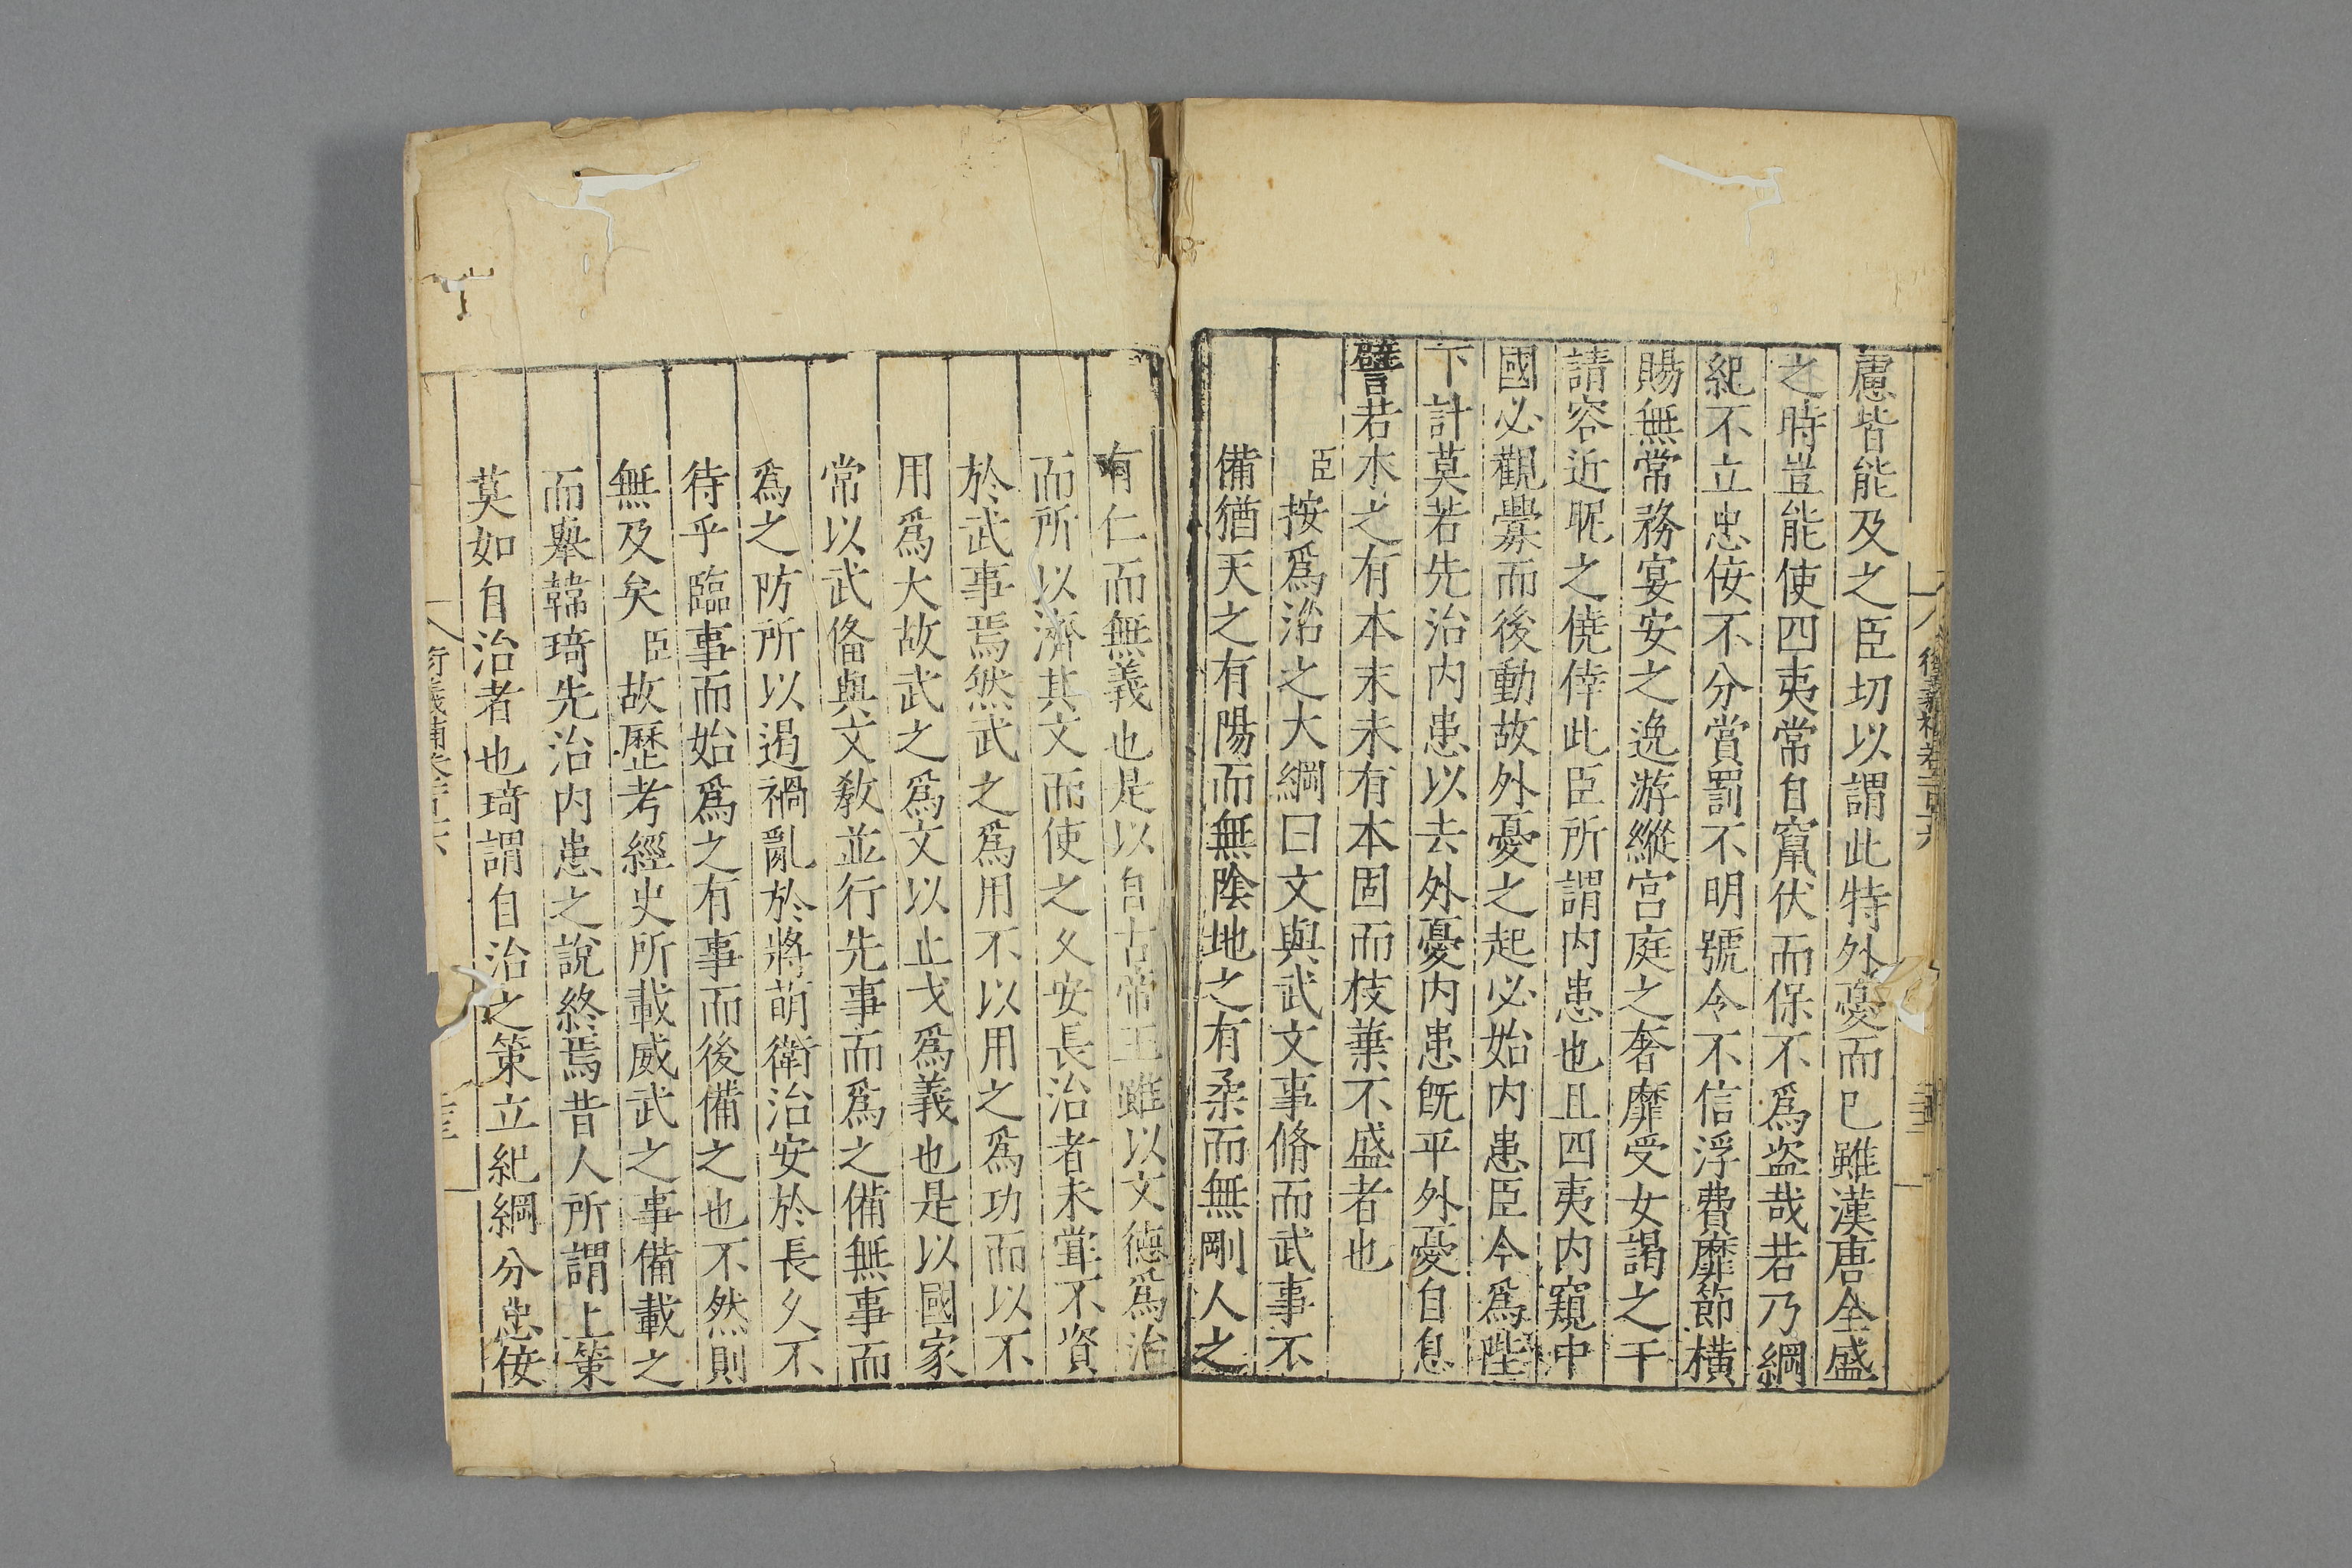 慮皆能及之臣切以謂此特外憂而已雖漢唐全盛
之時豈能使四夷常自竄伏而保不爲盗哉若乃綱
紀不立忠侫不分賞罰不明號令不信浮費靡節橫
賜無常務宴安之逸游縱宮庭之奢靡受女謁之干
請容近昵之僥倖此臣所謂内患也且四夷内窺中
國必觀釁而後動故外憂之起必始内患臣今爲陛
下計莫若先治内患以去外憂内患旣平外憂自息
譬若木之有本末未有本固而枝葉不盛者也
臣按爲治之大綱曰文與武文事脩而武事不
備猶天之有陽而無陰地之有柔而無剛人之
有仁而無義也是以自古帝王雖以文德爲治
而所以濟其文而使之久安長治者未甞不資
於武事焉然武之爲用不以用之爲功而以不
用爲大故武之爲文以止戈爲義也是以國家
常以武備與文敎並行先事而爲之備無事而
爲之防所以遏禍亂於將萌衛治安於長久不
待乎臨事而始爲之有事而後備之也不然則
無及矣臣故歷考經史所載威武之事備載之
而舉韓琦先治内患之說終焉昔人所謂上策
莫如自治者也琦謂自治之策立紀綱分忠侫